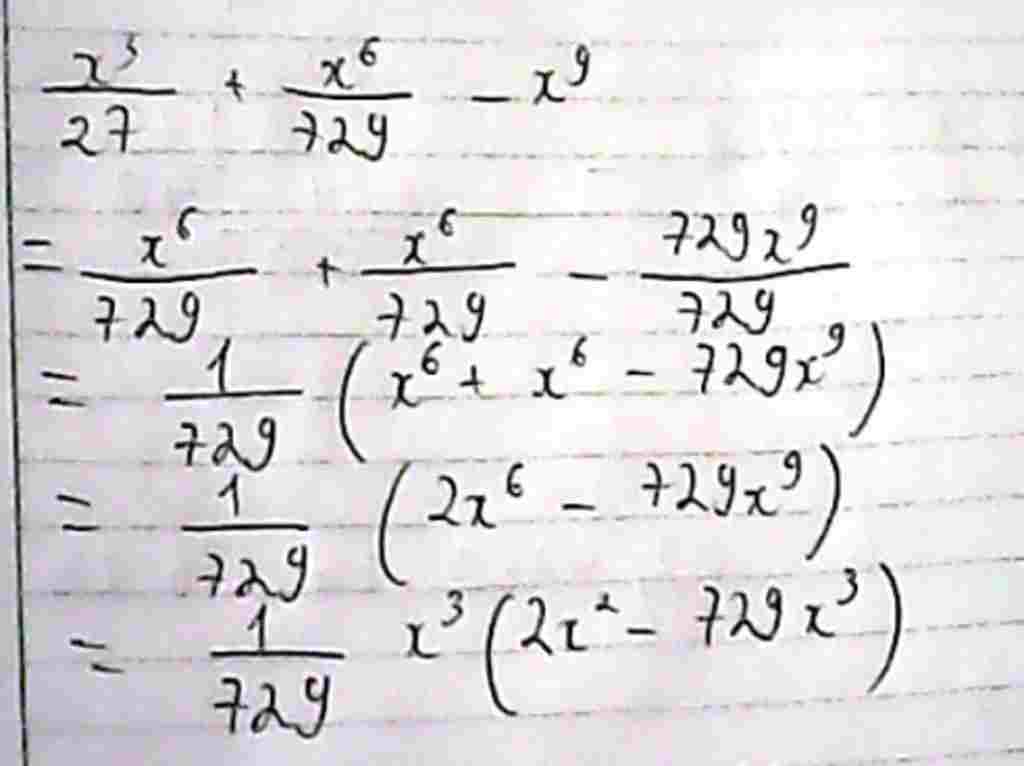 x³/27 + x⁶/729 - x⁹
= x⁶/729 + x⁶/729 - 729x⁹/729
= 1/729 (x⁶ + x⁶ - 729x⁹)
= 1/729 (2x⁶ - 729x⁹)
= 1/729 x³(2x² - 729x³)